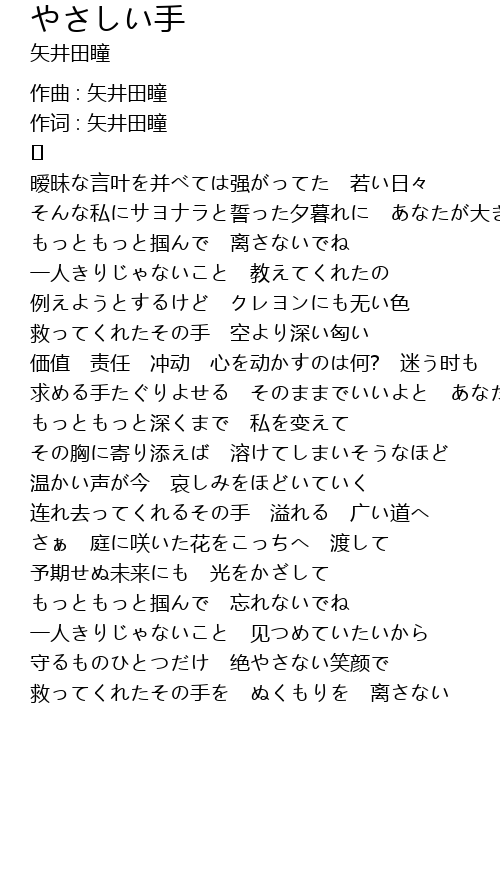 やさしい手
矢井田瞳
作曲 : 矢井田瞳
作词 : 矢井田瞳
[]
暧昧な言叶を并べては强がってた　若い日々
そんな私にサヨナラと誓った夕暮れに　あなたが大き
もっともっと掴んで　离さないでね
一人きりじゃないこと　教えてくれたの
例えようとするけど　クレヨンにも无い色
救ってくれたその手　空より深い匈い
価值　责任　冲动　心を动かすのは何?　迷う时も
求める手たぐりよせる　そのままでいいよと　あなた
もっともっと深くまで　私を変えて
その胸に寄り添えば　溶けてしまいそうなほど
温かい声が今　哀しみをほどいていく
连れ去ってくれるその手　溢れる　广い道へ
さぁ　庭に咲いた花をこっちへ　渡して
予期せぬ未来にも　光をかざして
もっともっと掴んで　忘れないでね
一人きりじゃないこと　见つめていたいから
守るものひとつだけ　绝やさない笑颜で
救ってくれたその手を　ぬくもりを　离さない